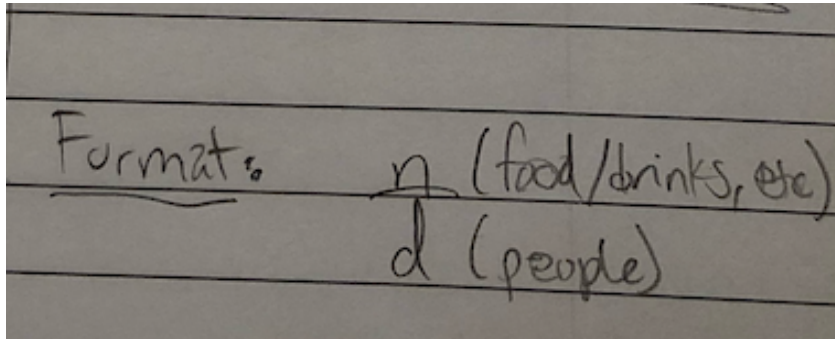 Format: n (food/drinks, etc)
d (people)